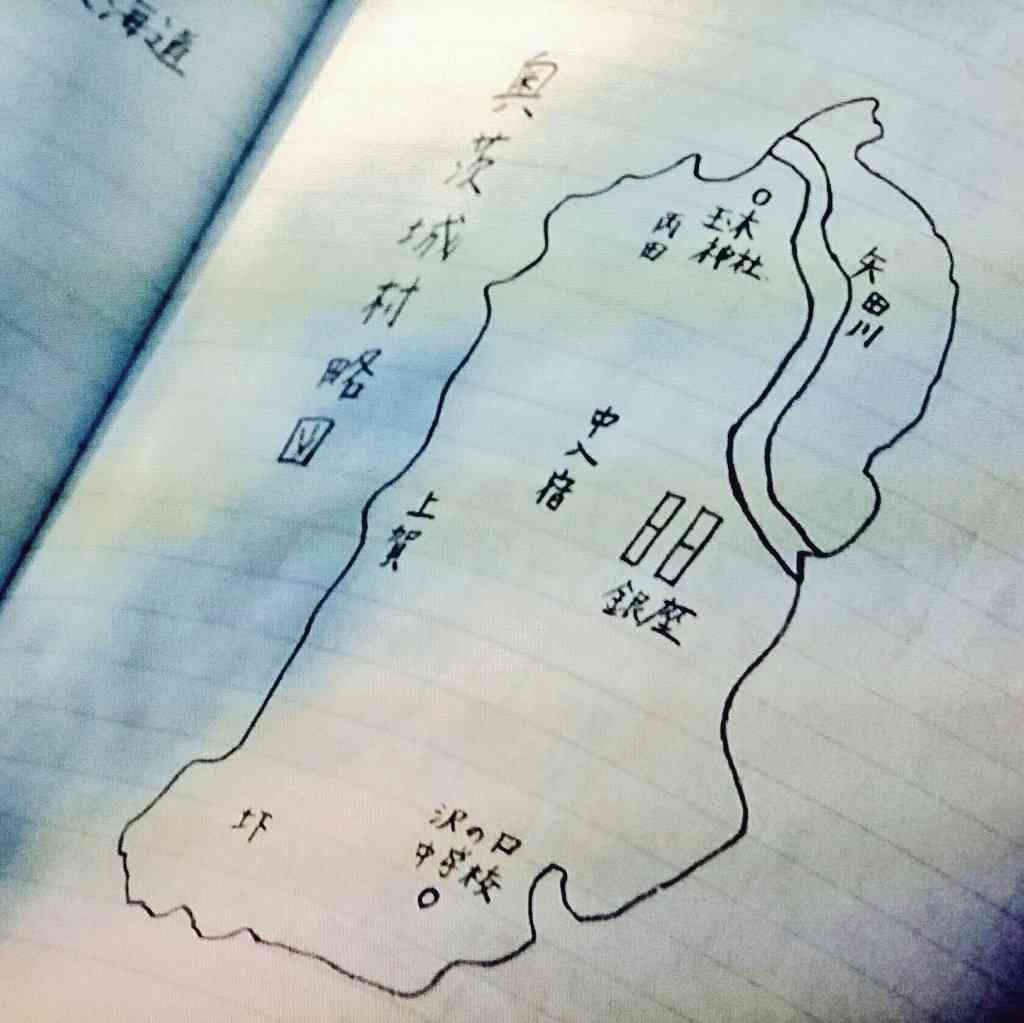 海道
奥茨城村略図
玉木
神社
丙田
矢田川
中入宿
銀座
上賀
圷
沢の口
中学校